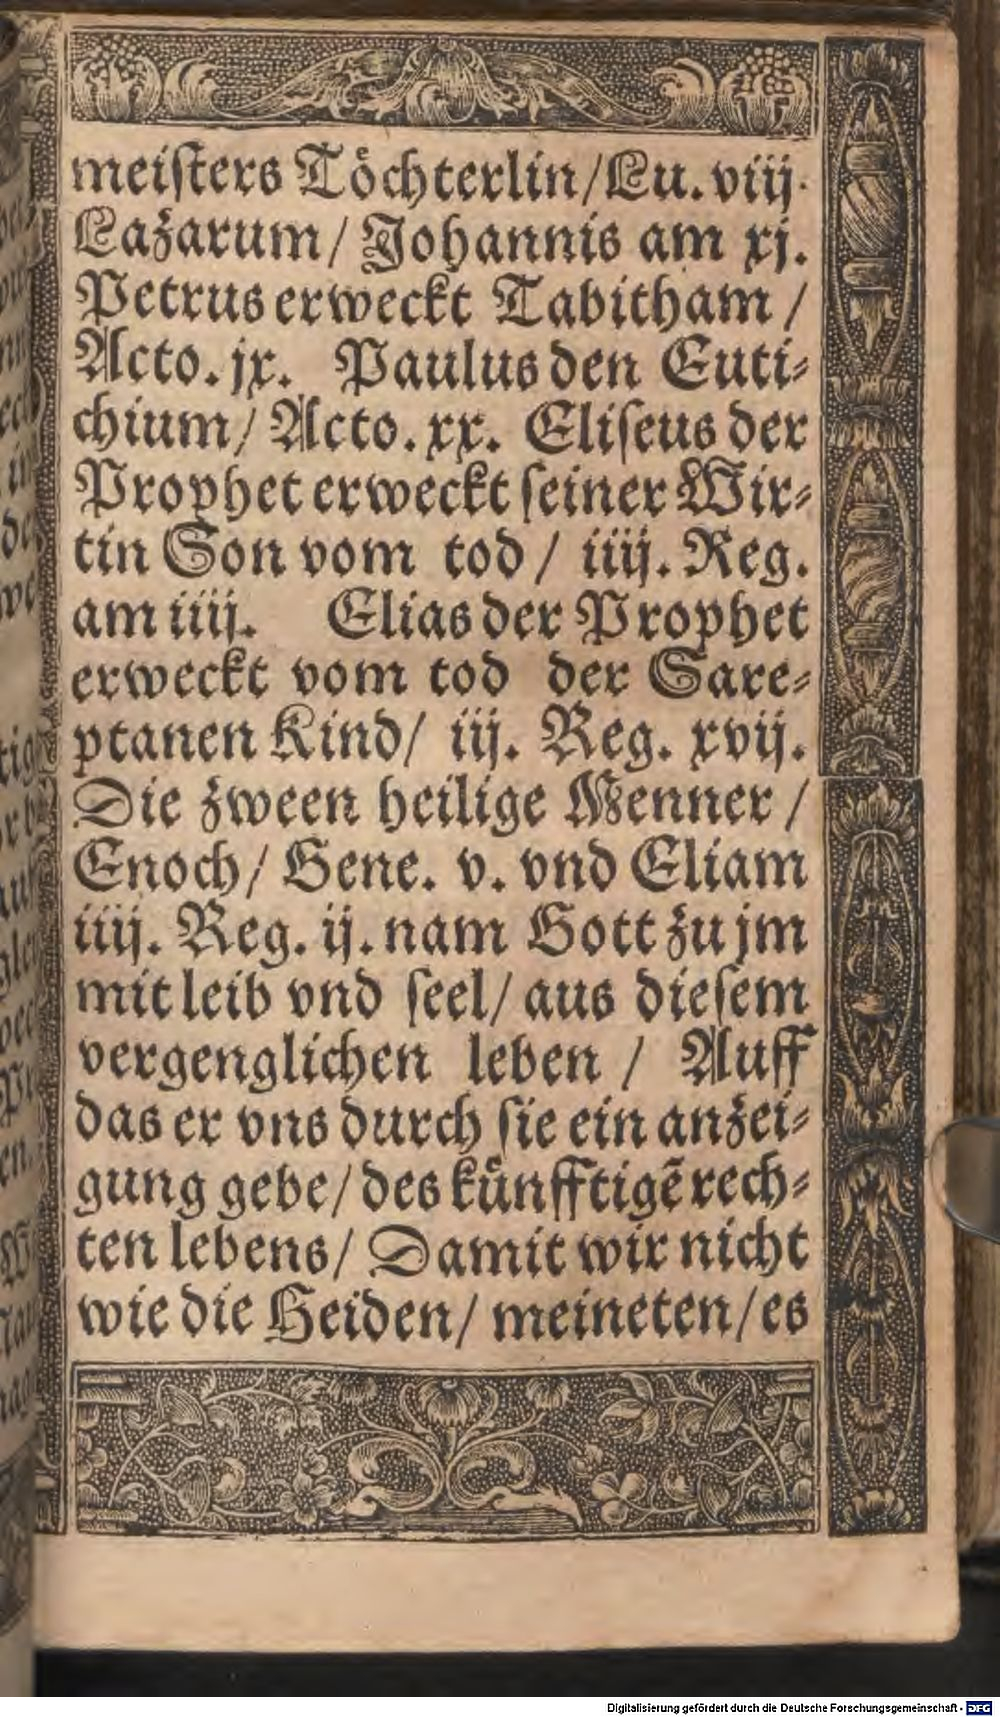 meiſters Toͤchterlin/Lu. viij.
Lazarum/ Johannis am xj.
Petrus erweckt Tabitham /
Acto. jx. Paulus den Euti⸗
chium/ Acto. xx. Eliſeus der
Prophet erweckt ſeiner Wir⸗
tin Son vom tod / iiij. Reg.
am iiij. Elias der Prophet
erweckt vom tod der Sare⸗
ptanen Kind/ iij. Reg. xvij.
Die zween heilige Menner /
Enoch/ Gene. v. vnd Eliam
iiij. Reg. ij. nam Gott zu jm
mit leib vnd ſeel/ aus dieſem
vergenglichen leben / Auff
das er vns durch ſie ein anzei⸗
gung gebe/ des kuͤnfftigẽ rech⸗
ten lebens/ Damit wir nicht
wie die Heiden/ meineten/ es
Digitalisierung gefördert durch die Deutsche Forschungsgemeinschaft - DFG